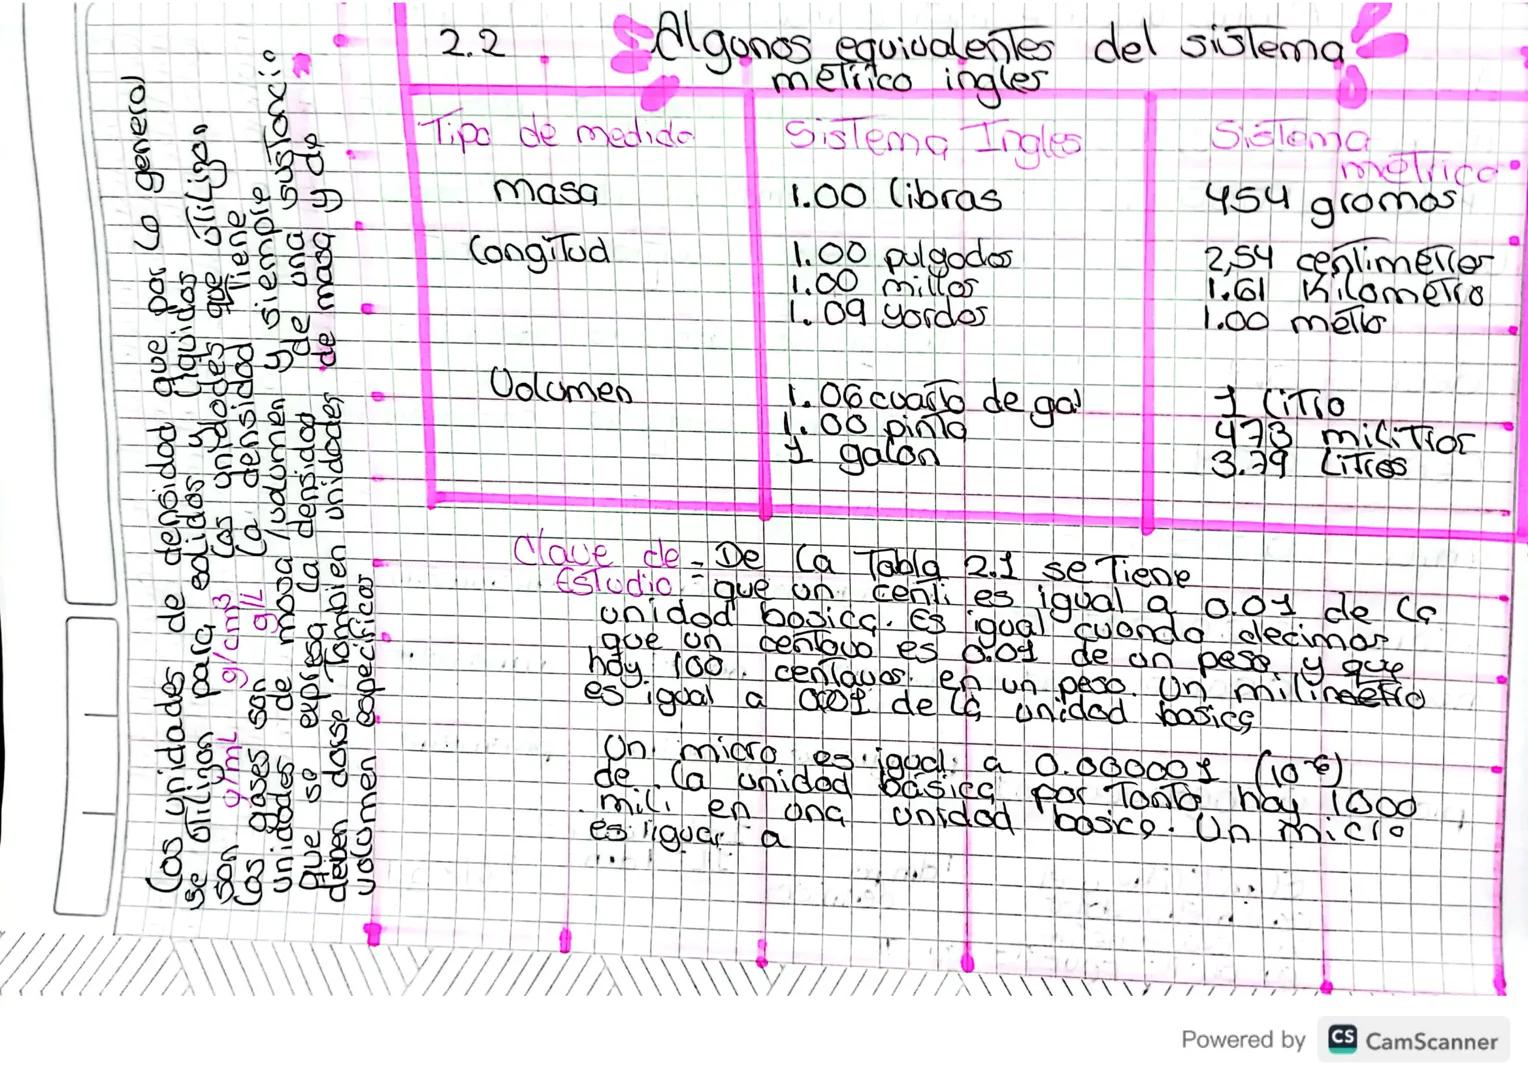 2.2 Algunos equivalentes del sistema
métrico ingles
Tipo de medida Sistema Ingles Sistema
métrico
masa 1.00 libras 454 gramos
longitud 1.00 pulgadas 2,54 centimetros
1.00 millas 1.61 Kilometro
1.09 yardas 1.00 metro
Volumen 1.06 cuarto de gal 1 litro
1.00 pinta 473 mililitros
1 galón 3.79 litros
Clave de - De la Tabla 2.1 se Tiene
Estudio - que un centi es igual a 0.01 de la
unidad basica. Es igual cuando decimos
que un centavo es 0.01 de un peso y que
hay 100 centavos en un peso. Un milimetro
es igual a 0.001 de la unidad basica
Un micro es igual a 0.000001 (10-6)
de la unidad básica por Tanto hay 1000
mili en una unidad basica. Un micro
es igual a
Las unidades de densidad que por lo general
se utilizan para solidos y liquidos
son g/mL g/cm3 las unidades que utilizan
los gases son g/L la densidad tiene
unidades de masa/volumen y siempre
que se expresa la densidad de una sustancia
deben darse Tambien unidades de masa y de
volumen especificas
Powered by CS CamScanner